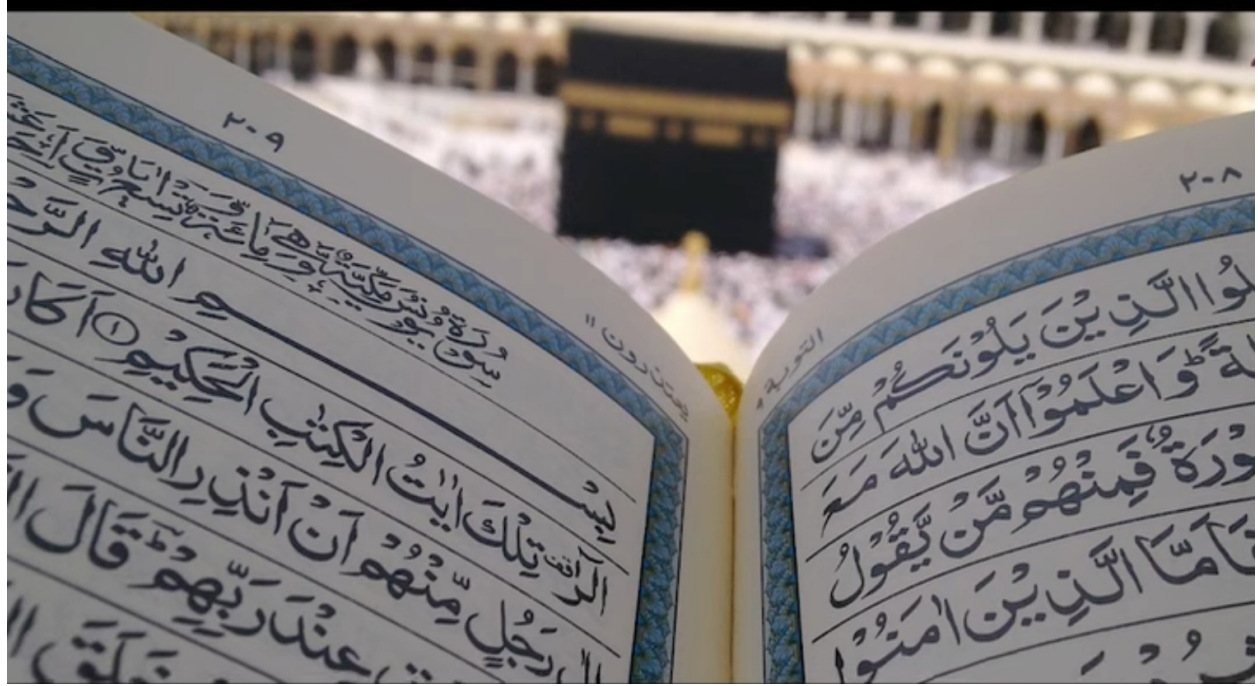 ٢٠٨
التوبة ٩
لُوا الَّذِيْنَ يَلُوْنَكُمْ مِّنَ
وَاعْلَمُوْۤا اَنَّ اللّٰهَ مَعَ
فَمِنْهُمْ مَّنْ يَّقُوْلُ
فَاَمَّا الَّذِيْنَ اٰمَنُوْا
٢٠٩
يعتذرون ١١
سُوْرَةُ يُوْنُسَ مَكِّيَّةٌ وَّهِيَ مِائَةٌ وَّتِسْعُ اٰيَاتٍ
بِسْمِ اللّٰهِ الرَّحْ
الٓرٰ تِلْكَ اٰيٰتُ الْكِتٰبِ الْحَكِيْمِ ۝١ اَكَانَ
اِلٰى رَجُلٍ مِّنْهُمْ اَنْ اَنْذِرِ النَّاسَ وَ
عِنْدَ رَبِّهِمْ قَالَ
خَلَقَ